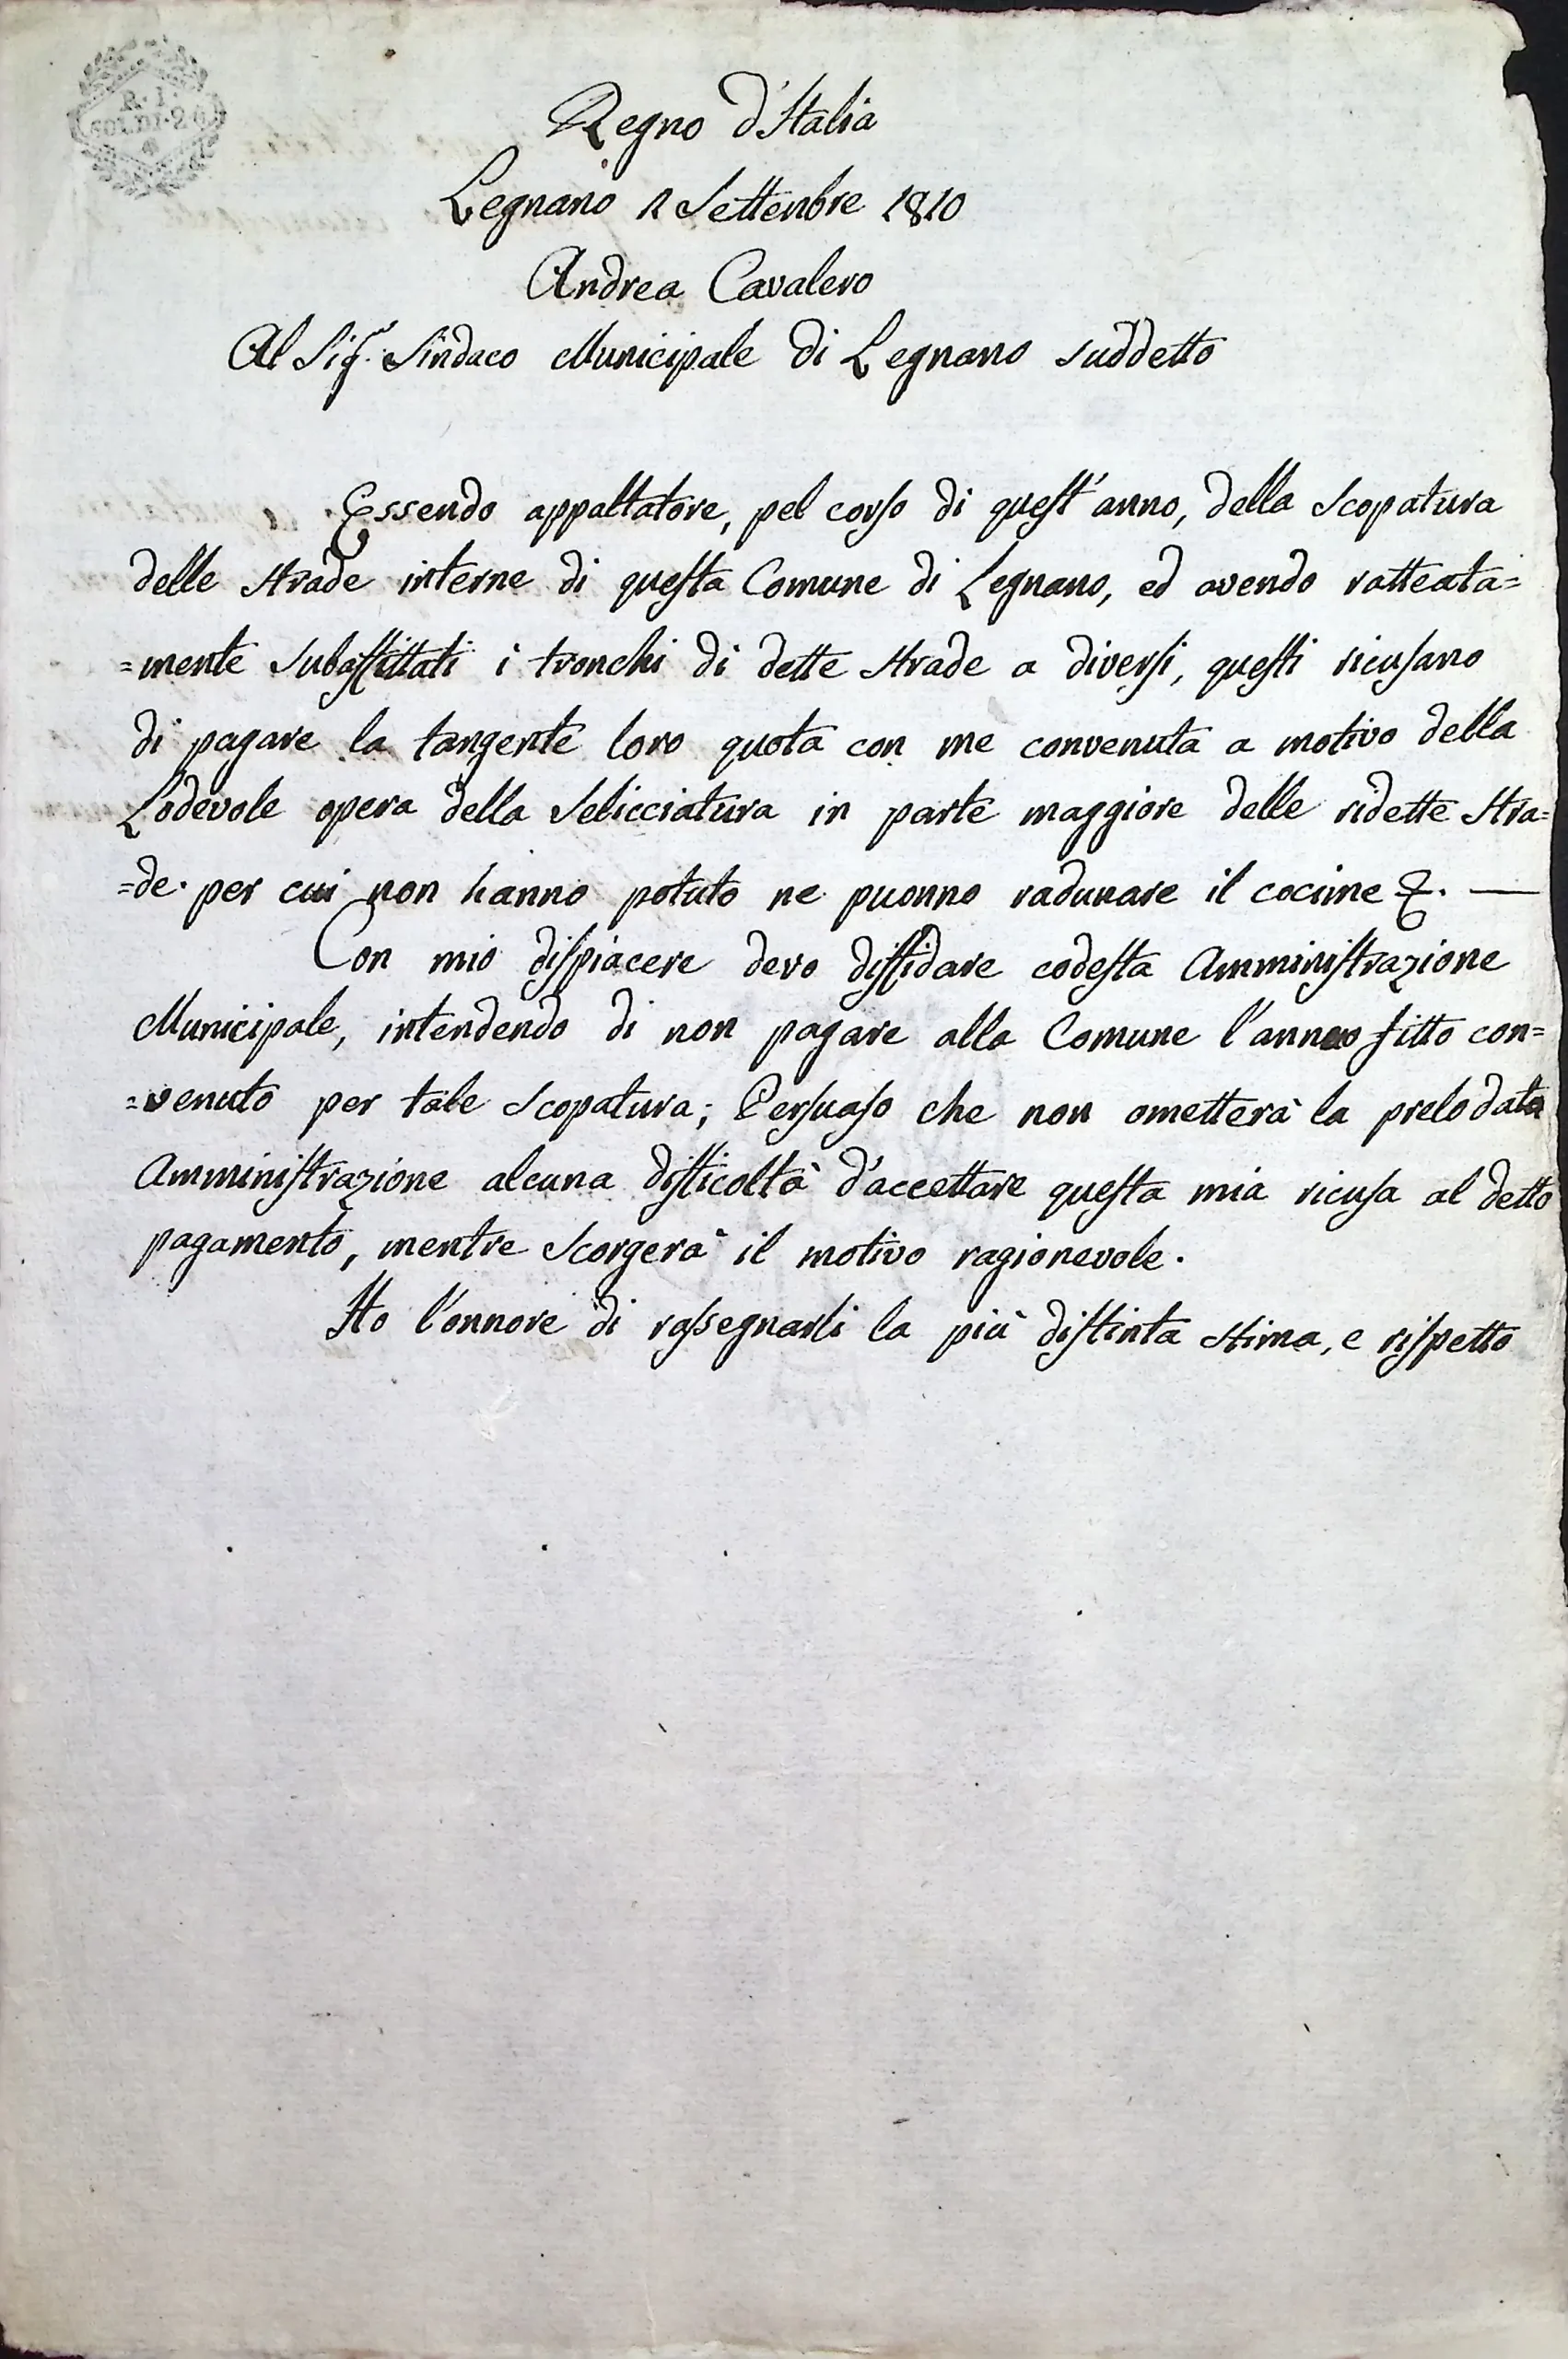 R. I.
SOLDI. 20
Regno d'Italia
Legnano 1 Settenbre 1810
Andrea Cavalero
Al Sig.r Sindaco Municipale di Legnano suddetto
Essendo appaltatore, pel corso di quest'anno, della Scopatura
delle Strade interne di questa Comune di Legnano, ed avendo ratteata=
=mente Subaffittati i tronchi di dette Strade a diversi, questi ricusano
di pagare la tangente loro quota con me convenuta a motivo della
Lodevole opera della Selicciatura in parte maggiore delle ridette Stra=
=de. per cui non hanno potuto ne puonno radunare il cocime &. —
Con mio dispiacere devo diffidare codesta Amministrazione
Municipale, intendendo di non pagare alla Comune l'annuo fitto con=
=venuto per tale Scopatura; Persuaso che non ometterà la prelodata
Amministrazione alcuna difficoltà d'accettare questa mia ricusa al detto
pagamento, mentre Scorgerà il motivo ragionevole.
Ho l'onnore di rassegnarli la più distinta Stima, e rispetto